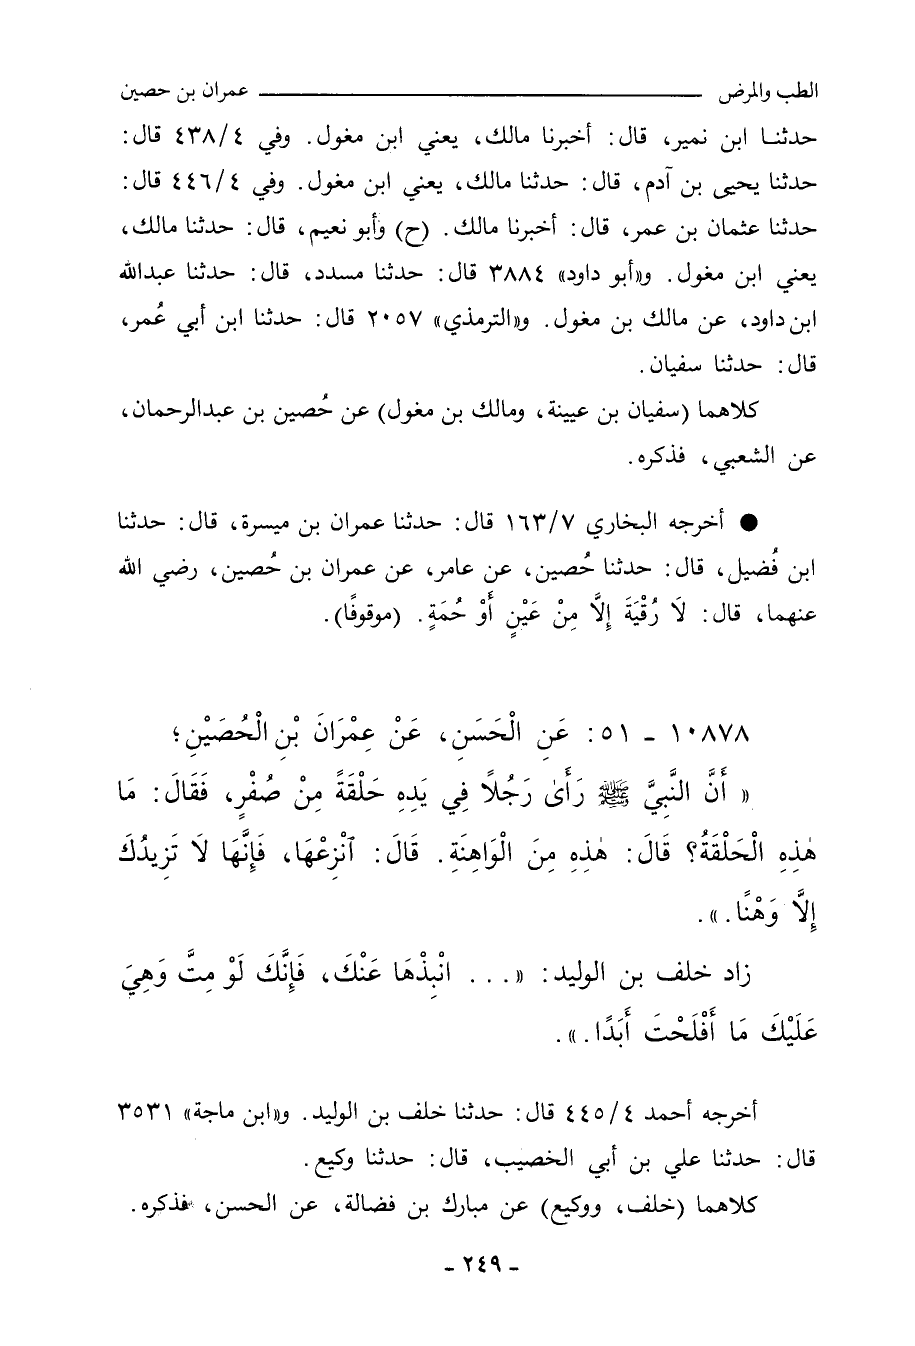 الطب والمرض ــــــــــــــــــــ عمران بن حصين
حدثنـا ابن نمير، قال: أخبرنا مالك، يعني ابن مغول. وفي ٤/٤٣٨ قال:
حدثنا يحيى بن آدم، قال: حدثنا مالك، يعني ابن مغول. وفي ٤/٤٤٦ قال:
حدثنا عثمان بن عمر، قال: أخبرنا مالك. (ح) وأبو نعيم، قال: حدثنا مالك،
يعني ابن مغول. و«أبو داود» ٣٨٨٤ قال: حدثنا مسدد، قال: حدثنا عبدالله
ابن داود، عن مالك بن مغول. و«الترمذي» ٢٠٥٧ قال: حدثنا ابن أبي عُمر،
قال: حدثنا سفيان.
كلاهما (سفيان بن عيينة، ومالك بن مغول) عن حُصين بن عبدالرحمان،
عن الشعبي، فذكره.
● أخرجه البخاري ٧/١٦٣ قال: حدثنا عمران بن ميسرة، قال: حدثنا
ابن فُضيل، قال: حدثنا حُصين، عن عامر، عن عمران بن حُصين، رضي الله
عنهما، قال: لَا رُقْيَةَ إِلَّا مِنْ عَيْنٍ أَوْ حُمَةٍ. (موقوفًا).
١٠٨٧٨ ـ ٥١: عَنِ الْحَسَنِ، عَنْ عِمْرَانَ بْنِ الْحُصَيْنِ؛
« أَنَّ النَّبِيَّ ﷺ رَأَىٰ رَجُلًا فِي يَدِهِ حَلْقَةً مِنْ صُفْرٍ، فَقَالَ: مَا
هٰذِهِ الْحَلْقَةُ؟ قَالَ: هٰذِهِ مِنَ الْوَاهِنَةِ. قَالَ: ٱنْزِعْهَا، فَإِنَّهَا لَا تَزِيدُكَ
إِلَّا وَهْنًا.».
زاد خلف بن الوليد: «... انْبِذْهَا عَنْكَ، فَإِنَّكَ لَوْ مِتَّ وَهِيَ
عَلَيْكَ مَا أَفْلَحْتَ أَبَدًا.».
أخرجه أحمد ٤/٤٤٥ قال: حدثنا خلف بن الوليد. و«ابن ماجة» ٣٥٣١
قال: حدثنا علي بن أبي الخصيب، قال: حدثنا وكيع.
كلاهما (خلف، ووكيع) عن مبارك بن فضالة، عن الحسن، فذكره.
ـ ٢٤٩ ـ